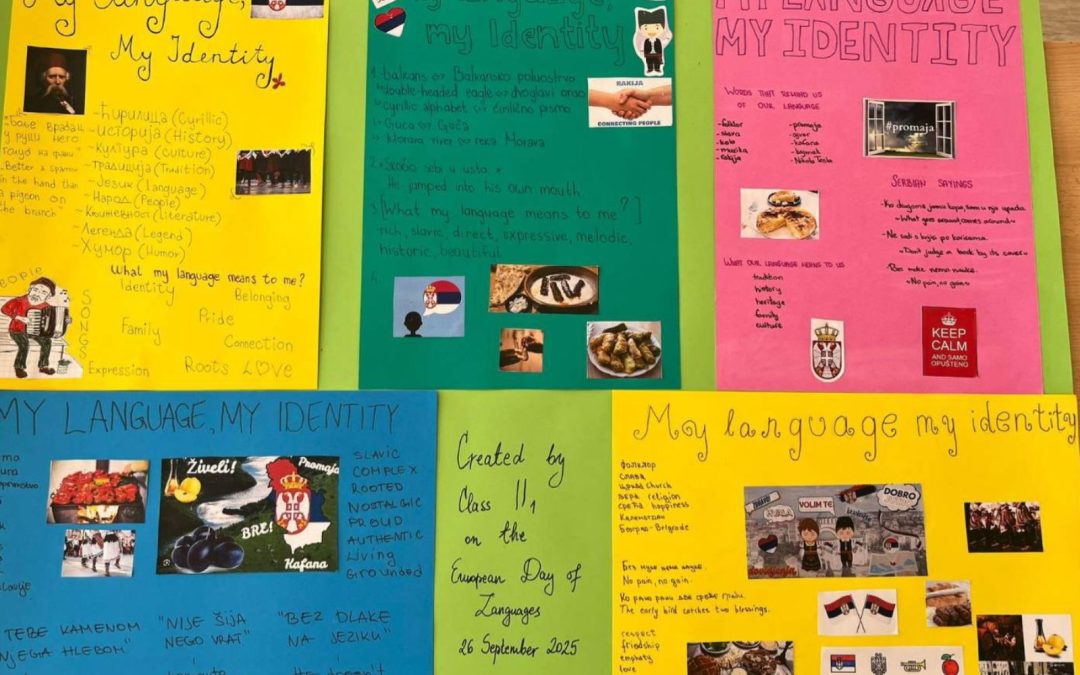 My Language,
My Identity
"Боље врабац
у руци него
голуб на грани"
"Better a sparrow
in the hand than
a pigeon on
the branch"
~Ћирилица (Cyrilic)
~Историја (History)
~Култура (culture)
~Традиција (Tradition)
~Језик (language)
~Народ (People)
~Књижевност (Literature)
~Легенда (Legend)
~Хумор (Humor)
What my language means to me?
Identity
Belonging
Pride
Family
Connection
Expression
Roots
Love
People
SONGS
My Language,
my Identity
1. balkans Balkansko poluostrvo
double-headed eagle dvoglavi orao
cyrilic alphabet ćirilično pismo
Guca Guča
Morava river reka Morava
2. "Skočio sebi u usta."
He jumped into his own mouth
3. [What my language means to me?]
rich, slavic, direct, expressive, melodic,
historic, beautiful
4.
RAKIJA
CONNECTING PEOPLE
MY LANGUAGE
MY IDENTITY
WORDS THAT REMIND US
OF OUR LANGUAGE
-folklor
-slava
-kolo
-muzika
-rakija
-promaja
-ajvar
-kafana
-kajmak
-Nikola Tesla
#promaja
SERBIAN SAYINGS
-Ko drugome jamu kopa, sam u nju upada.
~What goes around, comes around~
-Ne sudi o knjizi po koricama.
~Don't judge a book by its cover~
-Bez muke nema nauke.
~No pain, no gain~
WHAT OUR LANGUAGE MEANS TO US
tradition
history
heritage
family
culture
KEEP
CALM
AND SAMO
OPUŠTENO
MY LANGUAGE, MY IDENTITY
Živeli!
Promaja
BRE!
Kafana
SLAVIC
COMPLEX
ROOTED
NOSTALGIC
PROUD
AUTHENTIC
Living
Grounded
TEBE KAMENOM
NJEGA HLEBOM"
"NIJE ŠIJA
NEGO VRAT"
"BEZ DLAKE
NA JEZIKU"
Created by
Class II1
on the
European Day of
Languages
26 September 2025
My language my identity
фолклор
слава
црква church
вера religion
срећа happiness
Калемегдан
Београд-Belgrade
VOLIM TE
DOBRO
Без муке нема науке.
No pain, no gain.
Ко рано рани две среће граби.
The early bird catches two blessings.
respect
friendship
emphaty
love